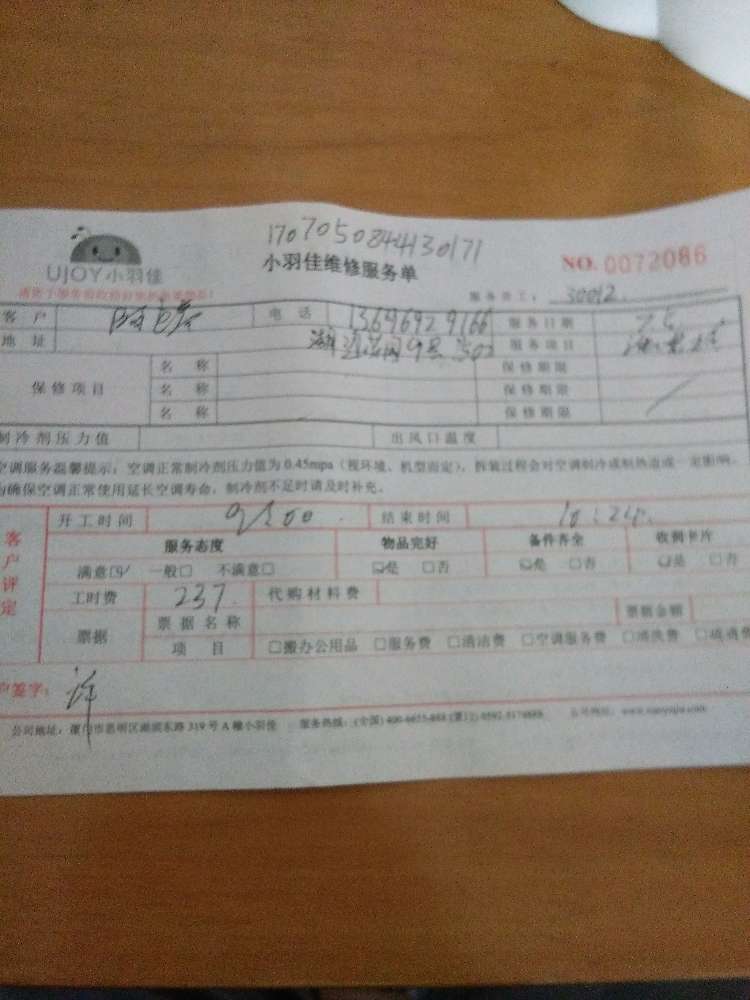 1707050844130171
UJOY小羽佳
小羽佳维修服务单
NO. 0072086
服务员工: 30012
客户 电话 13696929166 服务日期 7.5
地址 9号 302 服务项目
保修项目 名称 保修期限
名称 保修期限
名称 保修期限
制冷剂压力值 出风口温度
空调服务温馨提示:空调正常制冷剂压力值为0.45mpa(视环境、机型而定),拆装过程会对空调制冷或制热造成一定影响。
为确保空调正常使用延长空调寿命,制冷剂不足时请及时补充。
客户评定
开工时间 9:00 结束时间
服务态度 物品完好 备件齐全 收到卡片
满意☑ 一般□ 不满意□ ☑是 □否 ☑是 □否 ☑是 □否
工时费 237 代购材料费
票据 票据名称 票据金额
项目 □搬办公用品 □服务费 □清洁费 □空调服务费 □清洗费
户签字: 许
公司地址:厦门市思明区湖滨东路319号A幢小羽佳 服务热线:(全国)
公司网址: